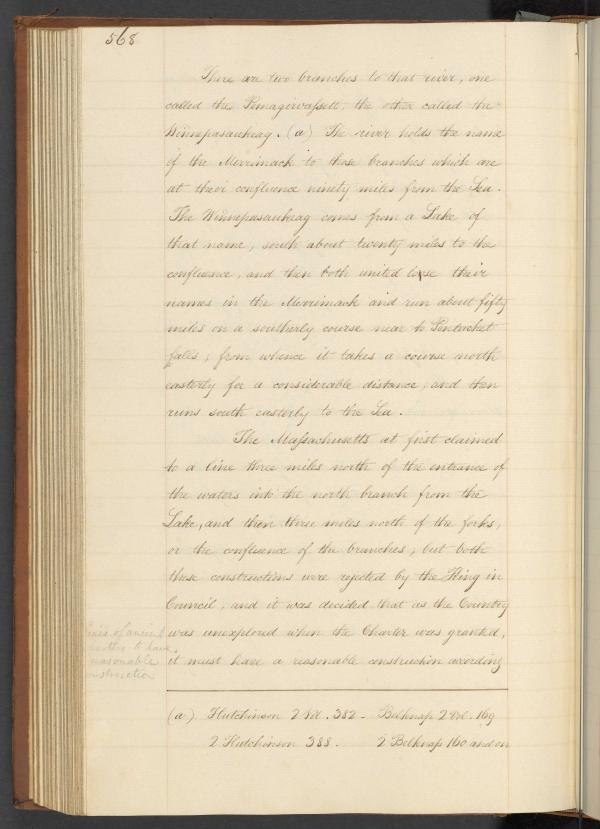 568
There are two branches to that river, one
called the Pemagiwassett, the other called the
Winnepasaukeag. (a) The river holds the name
of the Merrimack to those branches which are
at their confluence ninety miles from the Sea.
The Winnepasaukeag comes from a Lake of
that name, south about twenty miles to the
confluence, and then both united lose their
names in the Merrimack and run about fifty
miles on a southerly course near to Pentucket
falls; from whence it takes a course north
easterly for a considerable distance, and then
runs south easterly to the Sea.
The Massachusetts at first claimed
to a line three miles north of the entrance of
the waters into the north branch from the
Lake, and then three miles north of the forks,
or the confluence of the branches; but both
these constructions were rejected by the King in
Council, and it was decided that as the Country
was unexplored when the Charter was granted,
it must have a reasonable construction according
of ancient
to have
reasonable
construction
(a) Hutchinson 2 Vol. 382 - Belknap 2 Vol. 169
2 Hutchinson 388. 2 Belknap 160 and on